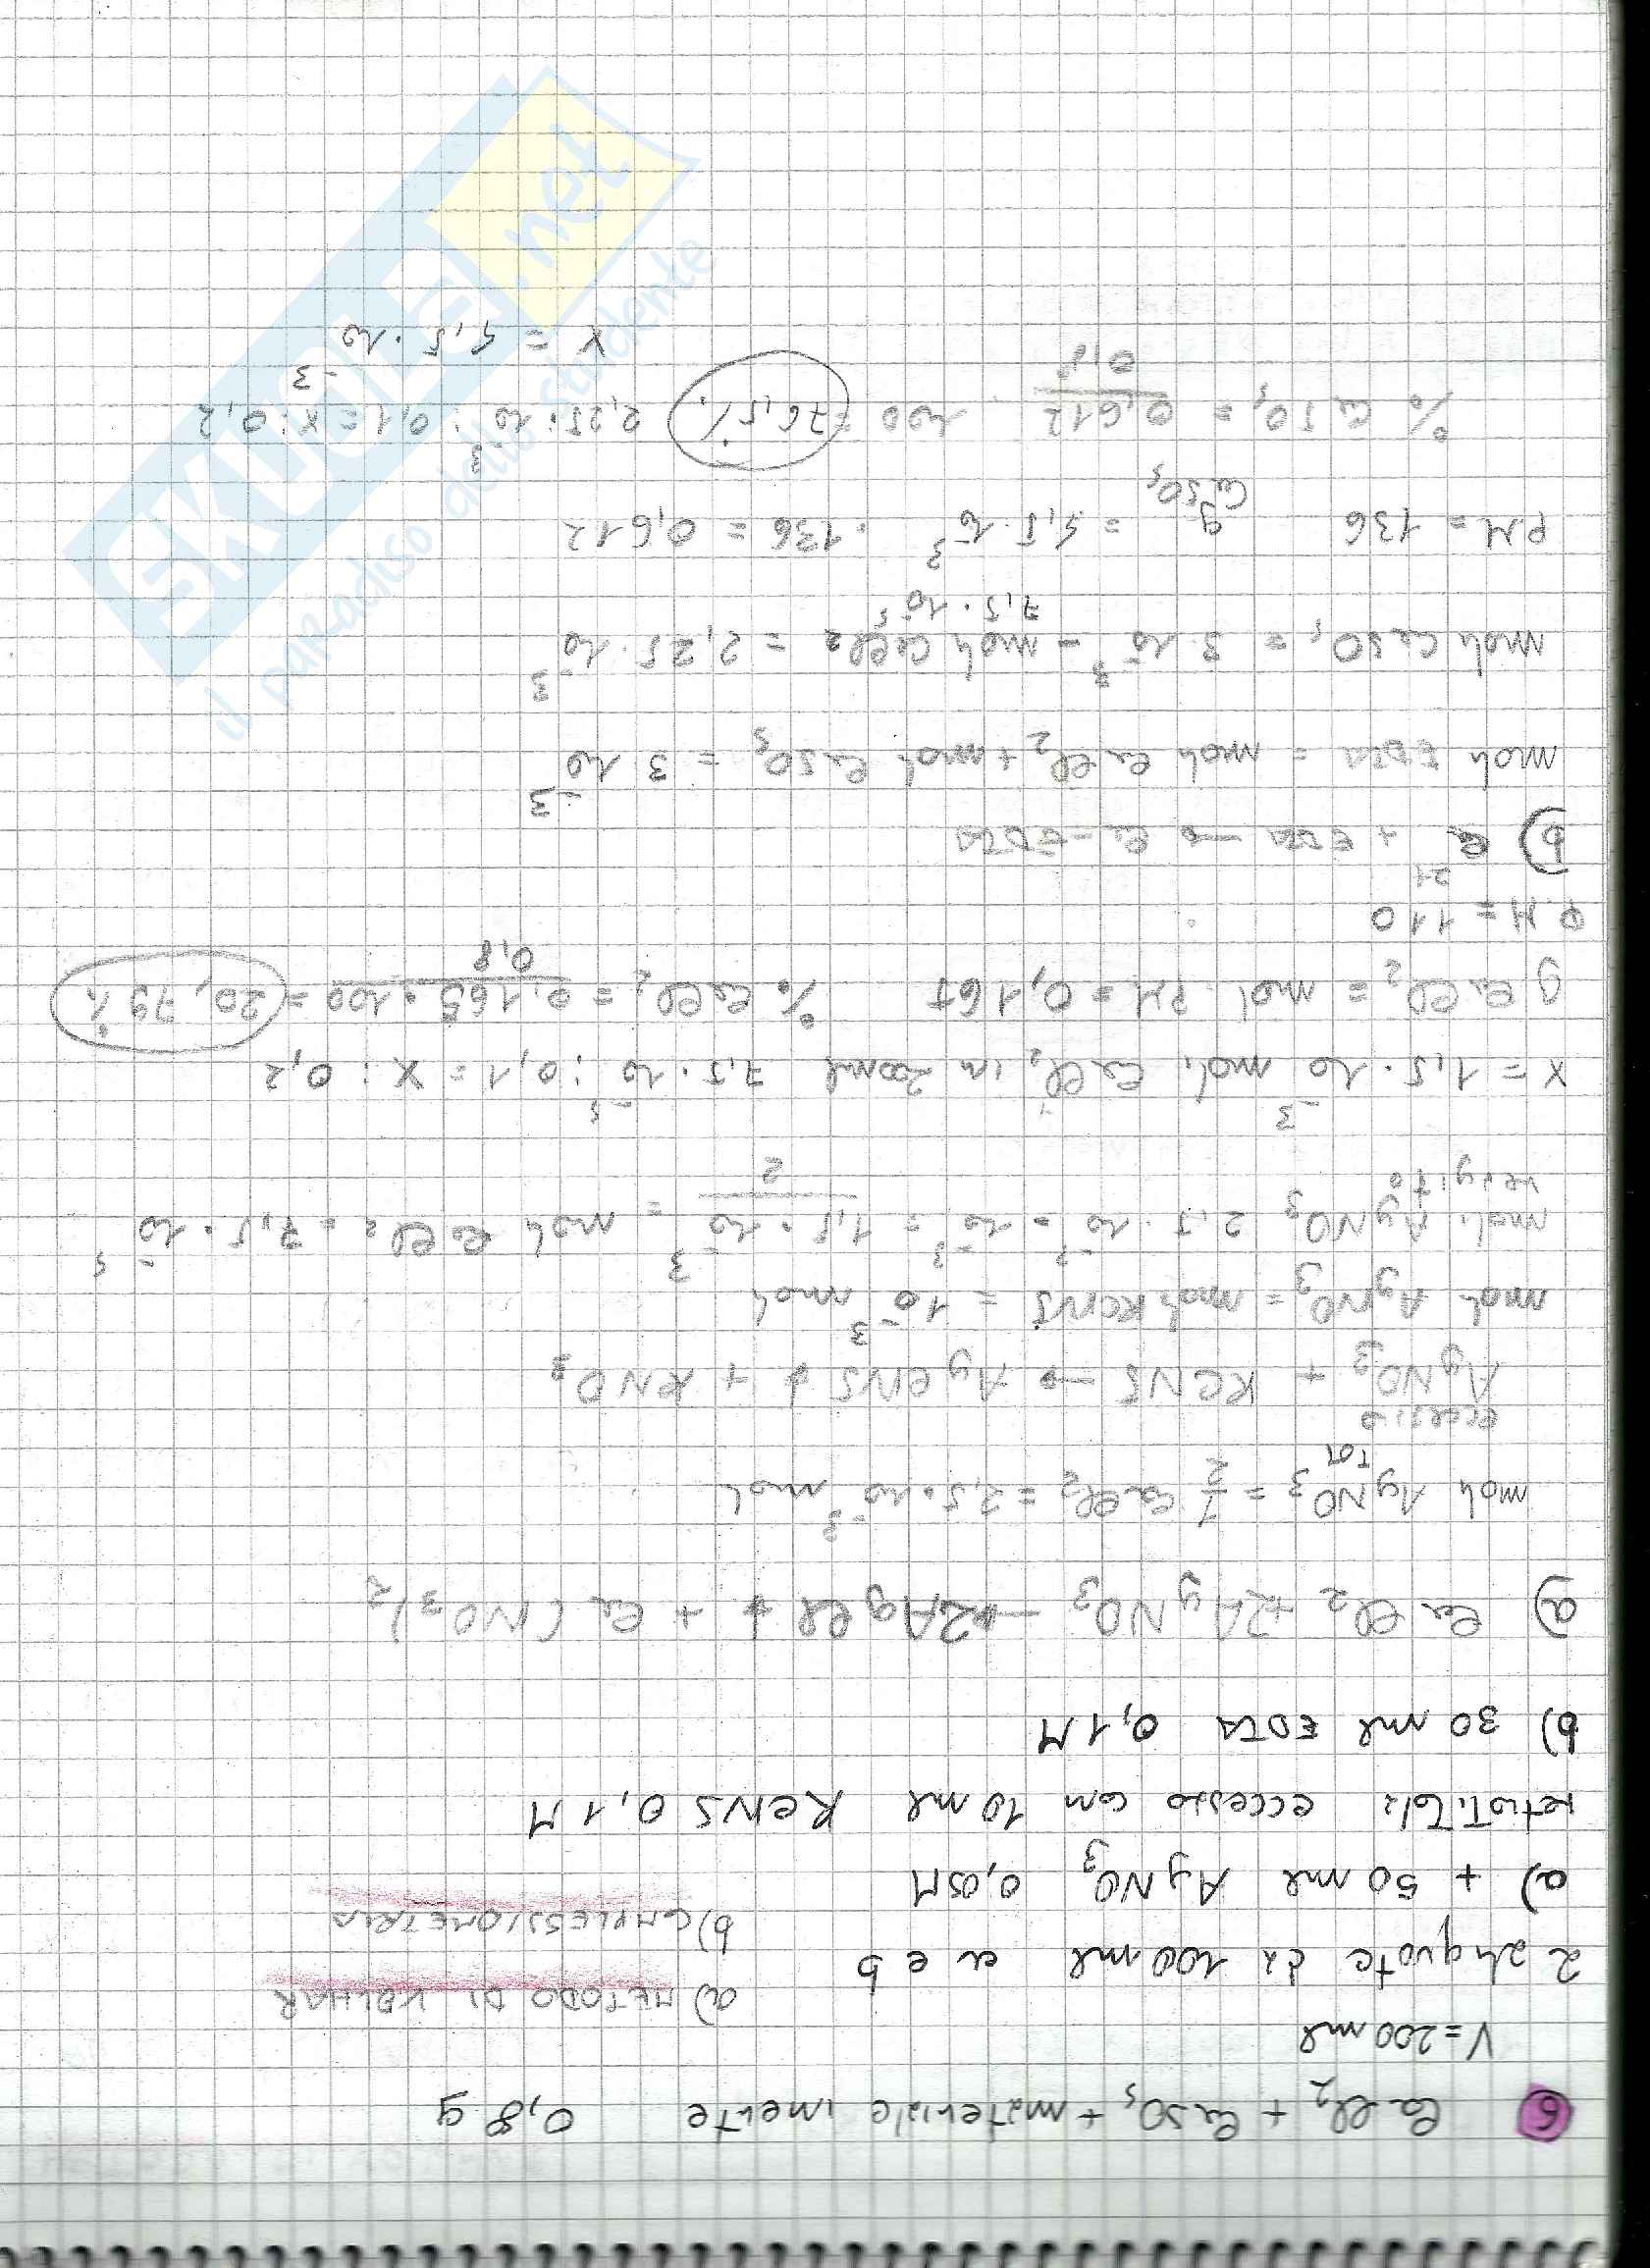 6 CaCl₂ + CaSO₄ + materiale inerte 0,8 g
V = 200 ml
2 aliquote da 100 ml a e b
a) METODO DI VOLHAR
b) COMPLESSIOMETRIA
a) + 50 ml AgNO₃ 0,05M
retrotitola eccesso con 10 ml KCNS 0,1 M
b) 30 ml EDTA 0,1 M
a) CaCl₂ + 2AgNO₃ → 2AgCl ↓ + Ca(NO₃)₂
moli AgNO₃ TOT = 1/2 CaCl₂ = 2,5 · 10⁻³ moli
AgNO₃ eccesso + KCNS → AgCNS ↓ + KNO₃
moli AgNO₃ = moli KCNS = 10⁻³ moli
moli AgNO₃ 2,5 · 10⁻³ - 10⁻³ = 1,5 · 10⁻³ / 2 = moli CaCl₂ = 7,5 · 10⁻⁴
x = 1,5 · 10⁻³ moli CaCl₂ in 200ml 7,5 · 10⁻⁴ : 0,1 = x : 0,2
g CaCl₂ = mol · PM = 0,165 % CaCl₂ = 0,165 · 100 / 0,8 = 20,79 %
P.M = 110
b) Ca²⁺ + EDTA → Ca-EDTA
moli EDTA = moli CaCl₂ + moli CaSO₄ = 3 10⁻³
moli CaSO₄ = 3 · 10⁻³ - moli CaCl₂ = 2,25 · 10⁻³
7,5 · 10⁻⁴
PM = 136 g CaSO₄ = 4,5 · 10⁻³ · 136 = 0,612
% CaSO₄ = 0,612 / 0,8 · 100 = 76,5 % 2,25 · 10⁻³ : 0,1 = x : 0,2
x = 4,5 · 10⁻³
SKUOLA.net
il paradiso dello studente